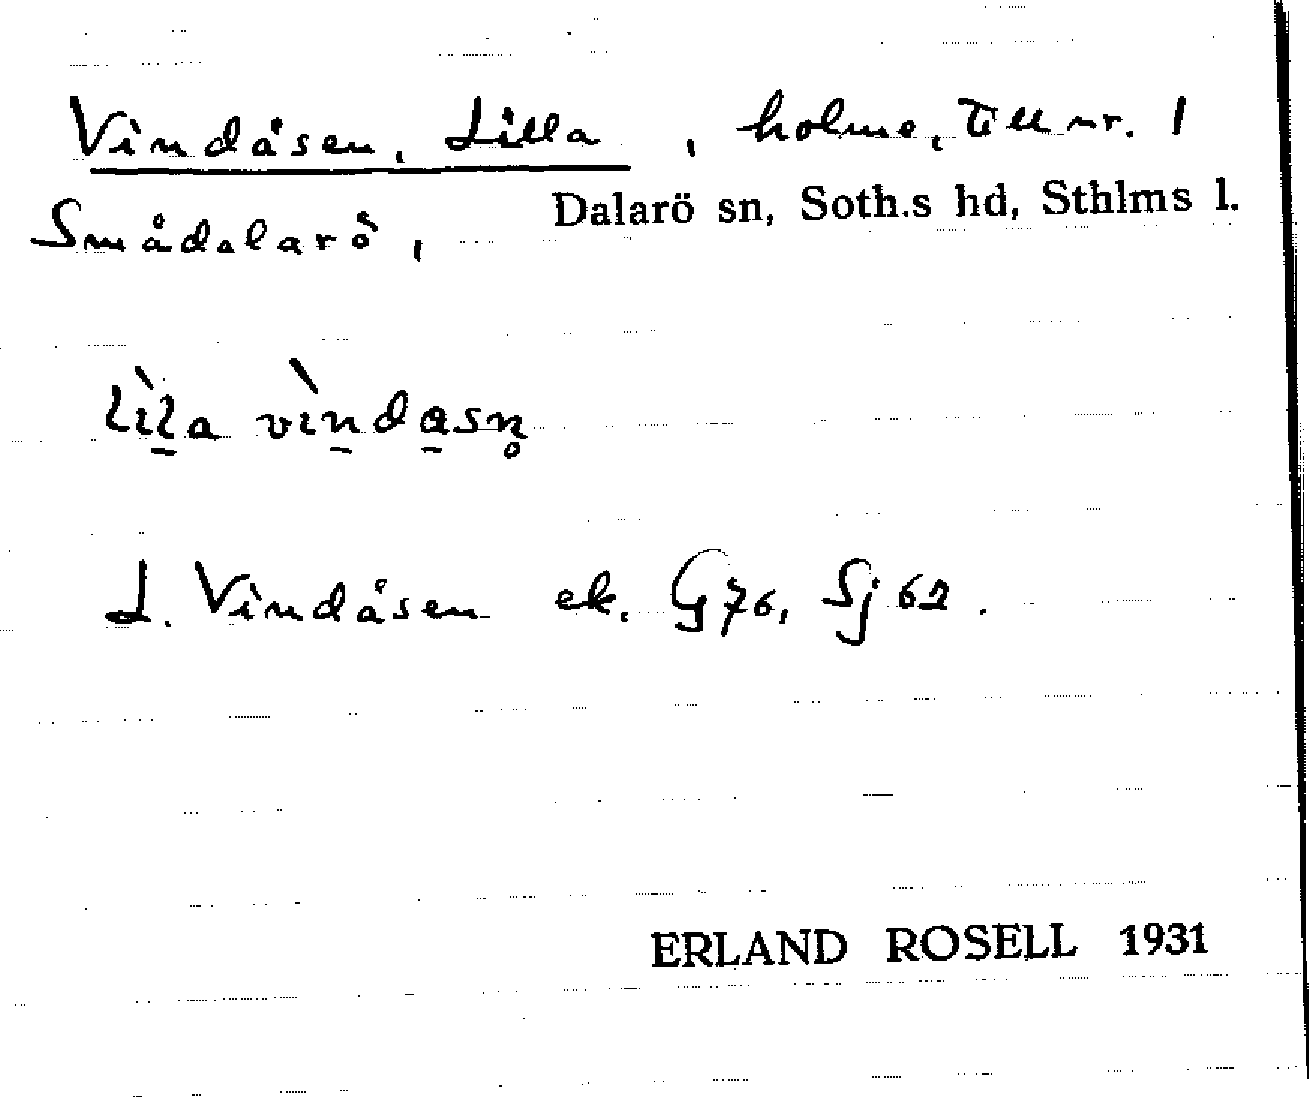 Vindåsen, Lilla, holme, Till nr. 1
Smådalarö, Dalarö sn, Soth.s hd, Sthlms l.
lìla vìndasn̥
L. Vindåsen ek. G76, Sj 62.
ERLAND ROSELL 1931